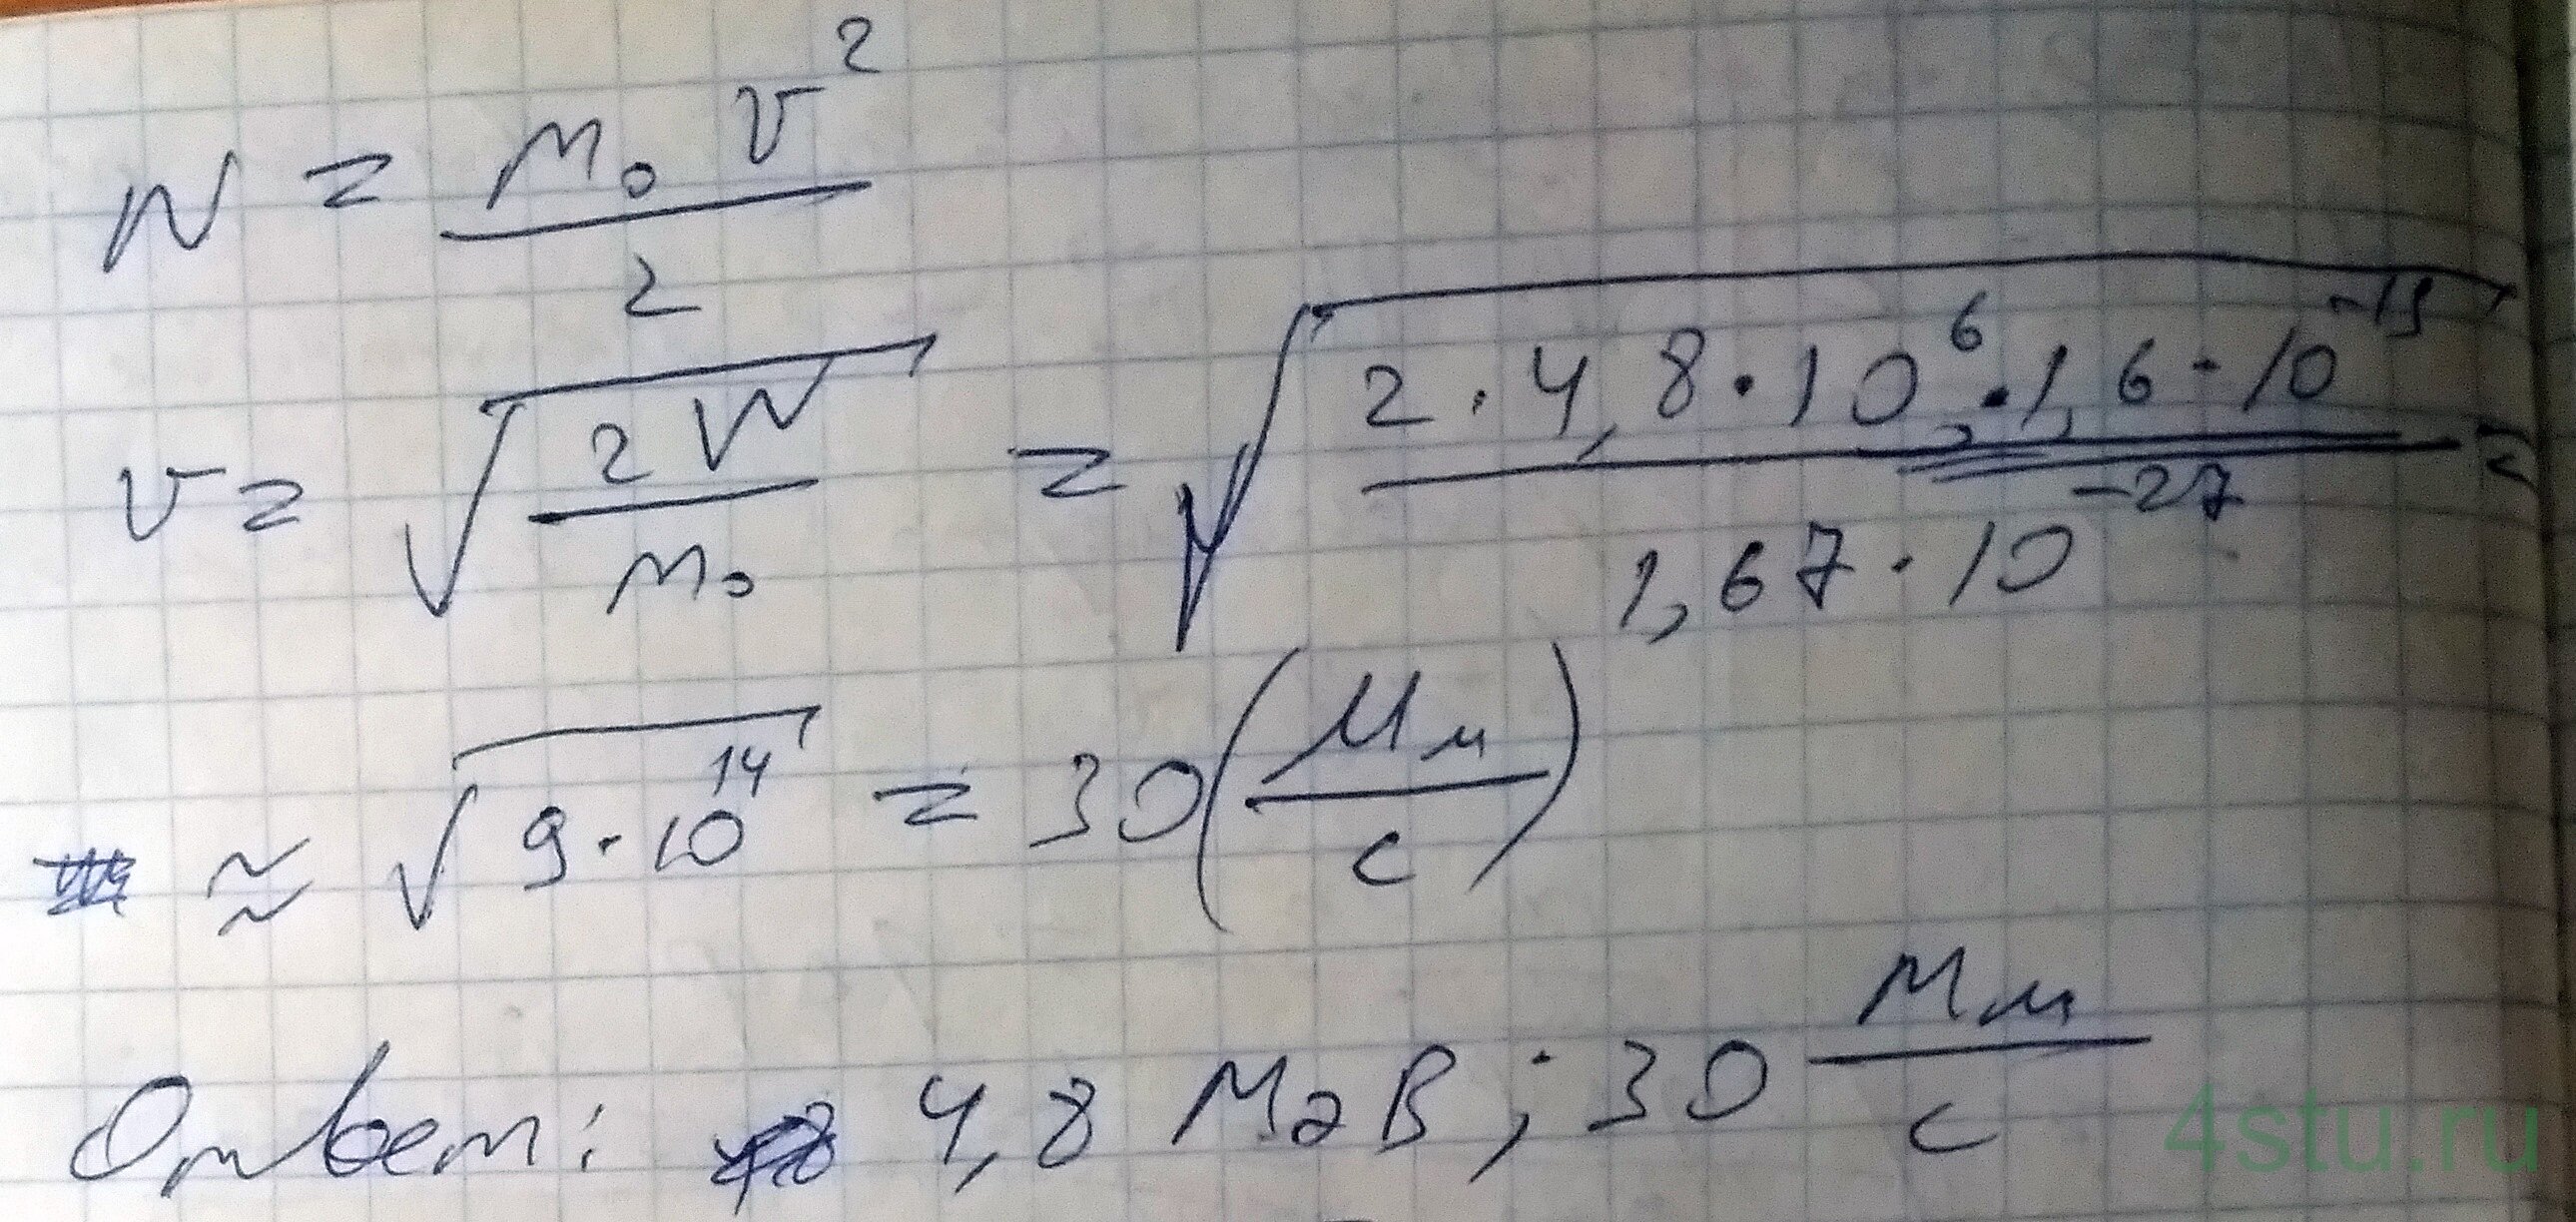 W = m₀ v² / 2
v = √(2W / m₀) = √(2 · 4,8 · 10⁶ · 1,6 · 10⁻¹⁹ / 1,67 · 10⁻²⁷) =
≈ √(9 · 10¹⁴) = 30 (Мм / с)
Ответ: 4,8 МэВ ; 30 Мм / с
4stu.ru